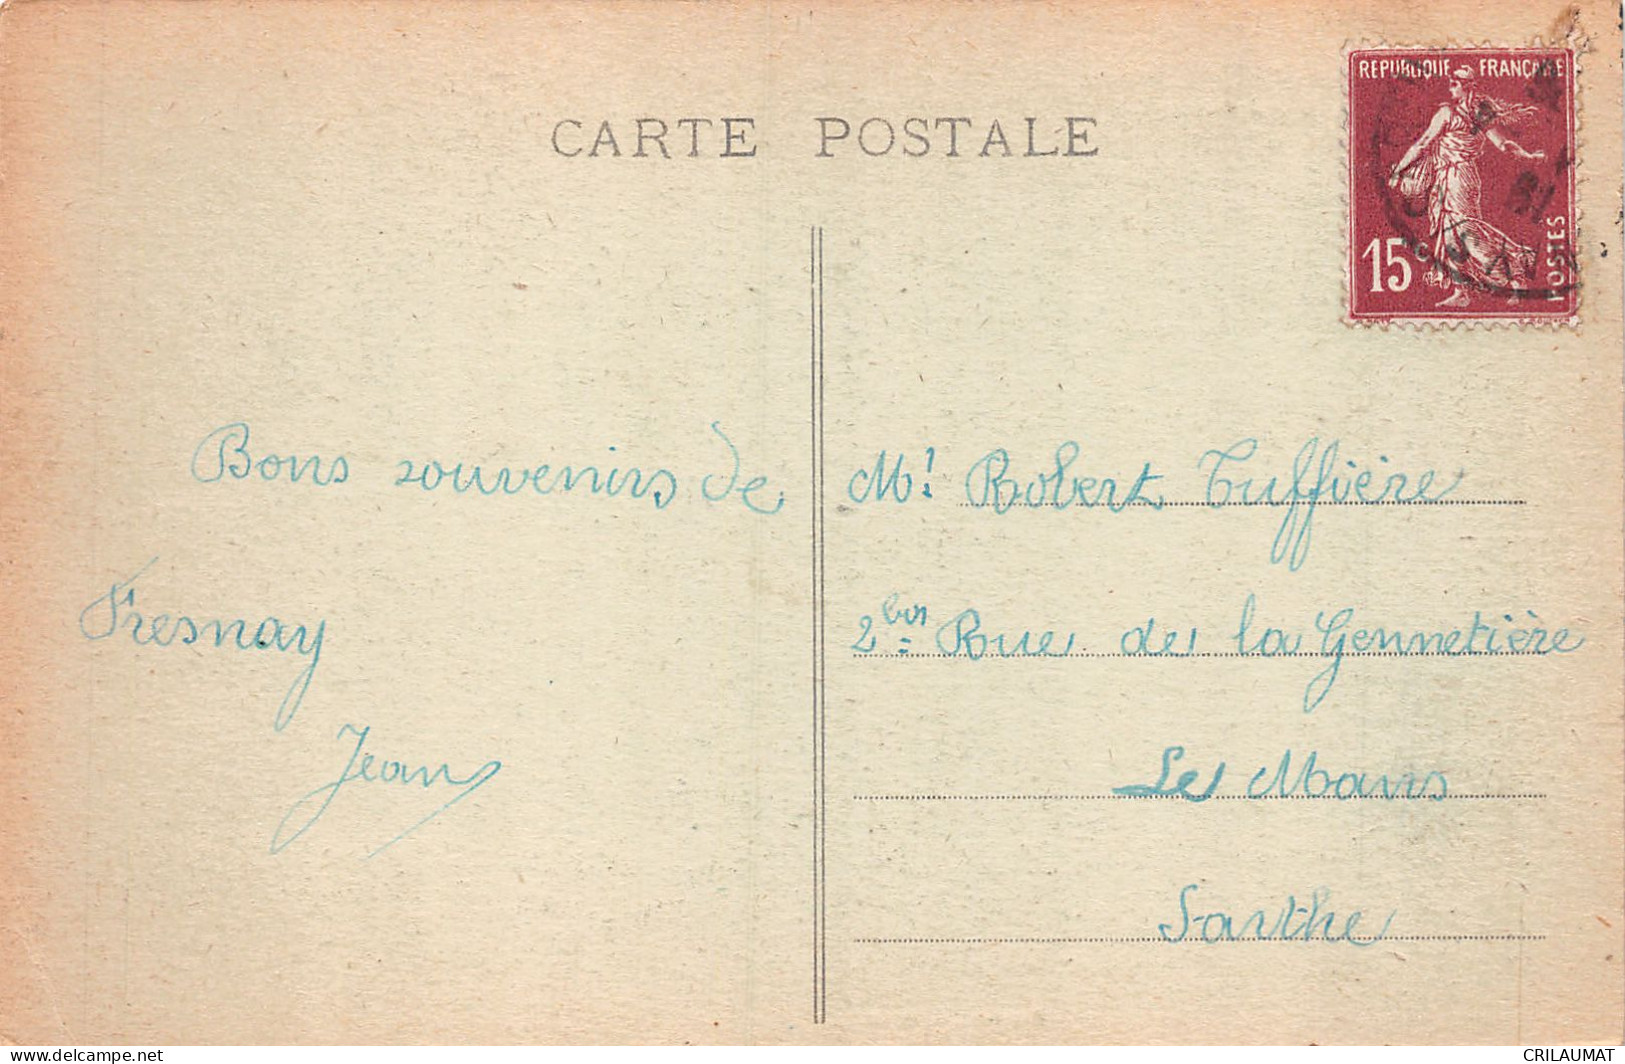 CARTE POSTALE
REPUBLIQUE FRANÇAISE
15c
POSTES
Bons souvenirs de
Fresnay
Jean
Mr Robert Tuffière
2bis Rue de la Gennetière
Le Mans
Sarthe
delcampe.net
CRILAUMAT